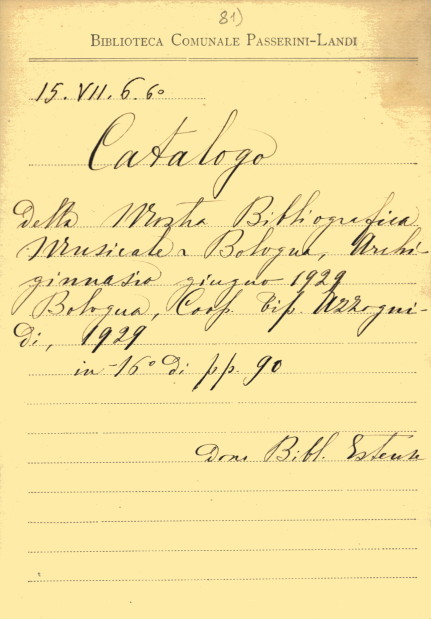 81)
BIBLIOTECA COMUNALE PASSERINI-LANDI
15. VII. 6. 6º
Catalogo
della Mostra Bibliografica
Musicale - Bologna, Archi-
ginnasio giugno 1929
Bologna, Coop. Tip. Azzogui-
di, 1929
in-16º di pp. 90
Dono Bibl. Estense